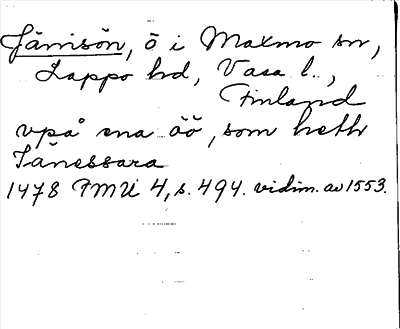 Jänisön, ö i Maxmo sn,
Lappo hd, Vasa l.,
Finland
vpå ena öö, som heth
Iänessara
1478 FMU 4, s. 494. vidim. av 1553.